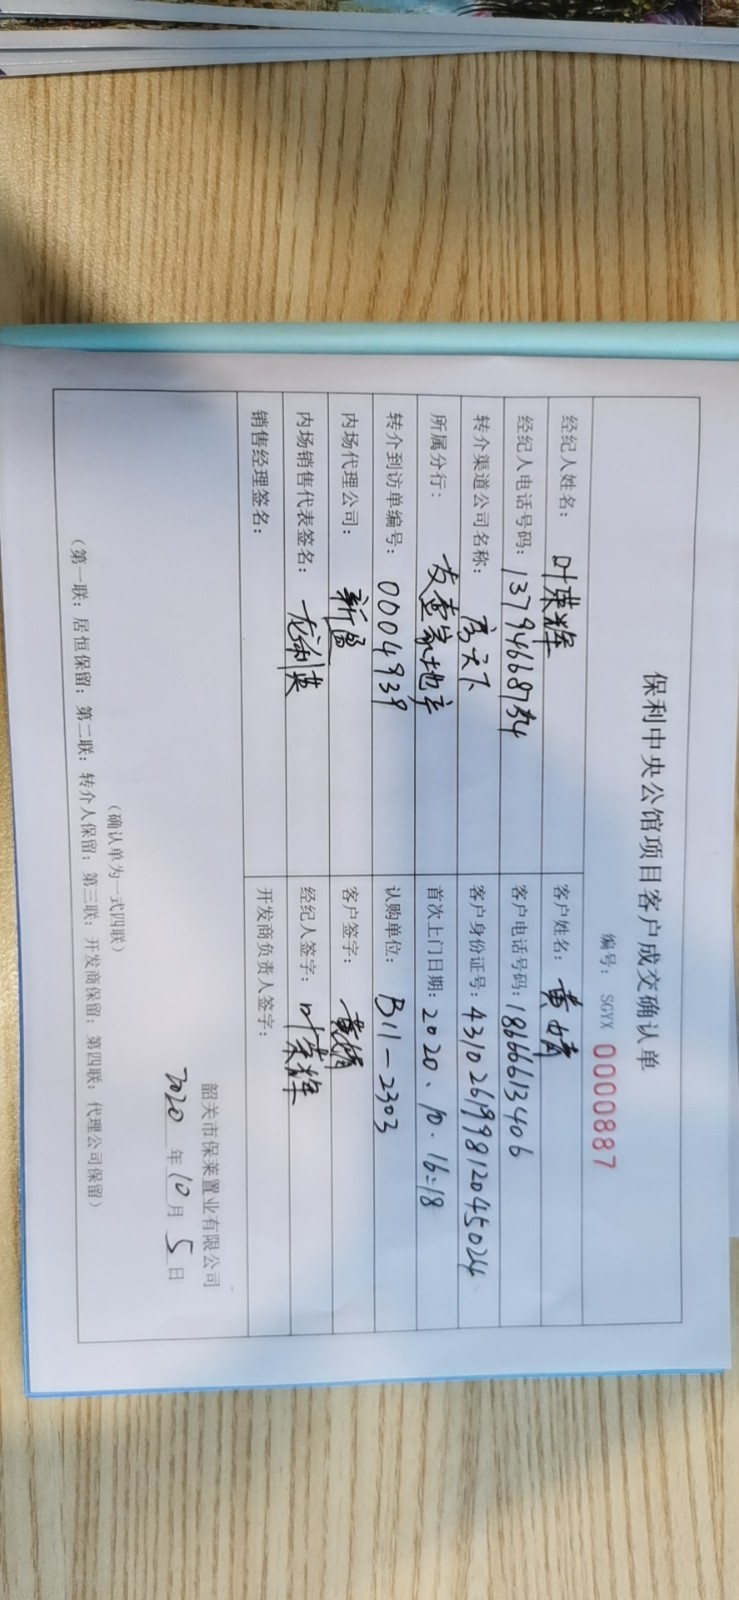 保利中央公馆项目客户成交确认单
编号: SGYX 0000887
经纪人姓名: 叶荣辉 客户姓名: 黄婧
经纪人电话号码: 客户电话号码: 18666613406
转介渠道公司名称: 房天下 客户身份证号: 431026199812045024
所属分行: 首次上门日期: 2020、10.16:18
转介到访单编号: 0004939 认购单位: B11-2303
内场代理公司: 客户签字: 黄婧
内场销售代表签名: 龙 英 经纪人签字: 叶荣辉
销售经理签名: 开发商负责人签字:
韶关市保莱置业有限公司
2020年10月5日
(确认单为一式四联)
(第一联: 居恒保留; 第二联: 转介人保留; 第三联: 开发商保留; 第四联: 代理公司保留)